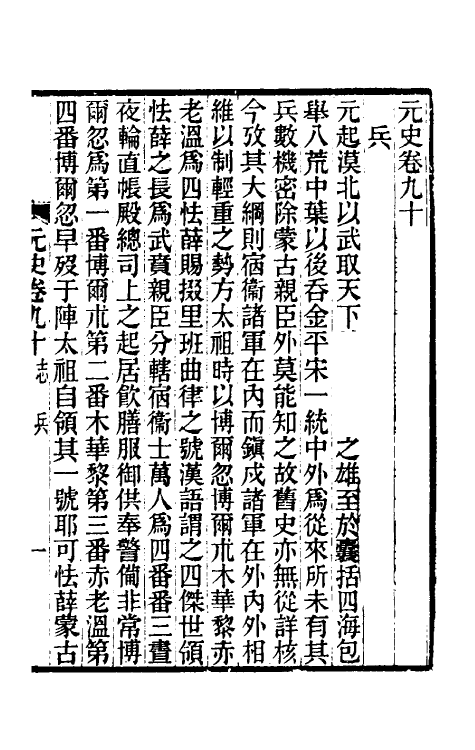 元史卷九十
兵
元起漠北以武取天下　　　之雄至於囊括四海包
舉八荒中葉以後吞金平宋一統中外爲從來所未有其
兵數機密除蒙古親臣外莫能知之故舊史亦無從詳核
今攷其大綱則宿衞諸軍在內而鎭戍諸軍在外內外相
維以制輕重之勢方太祖時以博爾忽博爾朮木華黎赤
老溫爲四怯薛賜掇里班曲律之號漢語謂之四傑世領
怯薛之長爲武賁親臣分轄宿衞士萬人爲四番番三晝
夜輪直帳殿總司上之起居飮膳服御供奉警備非常博
爾忽爲第一番博爾朮第二番木華黎第三番赤老溫第
四番博爾忽早歿于陣太祖自領其一號耶可怯薛蒙古
元史卷九十 志 兵 一